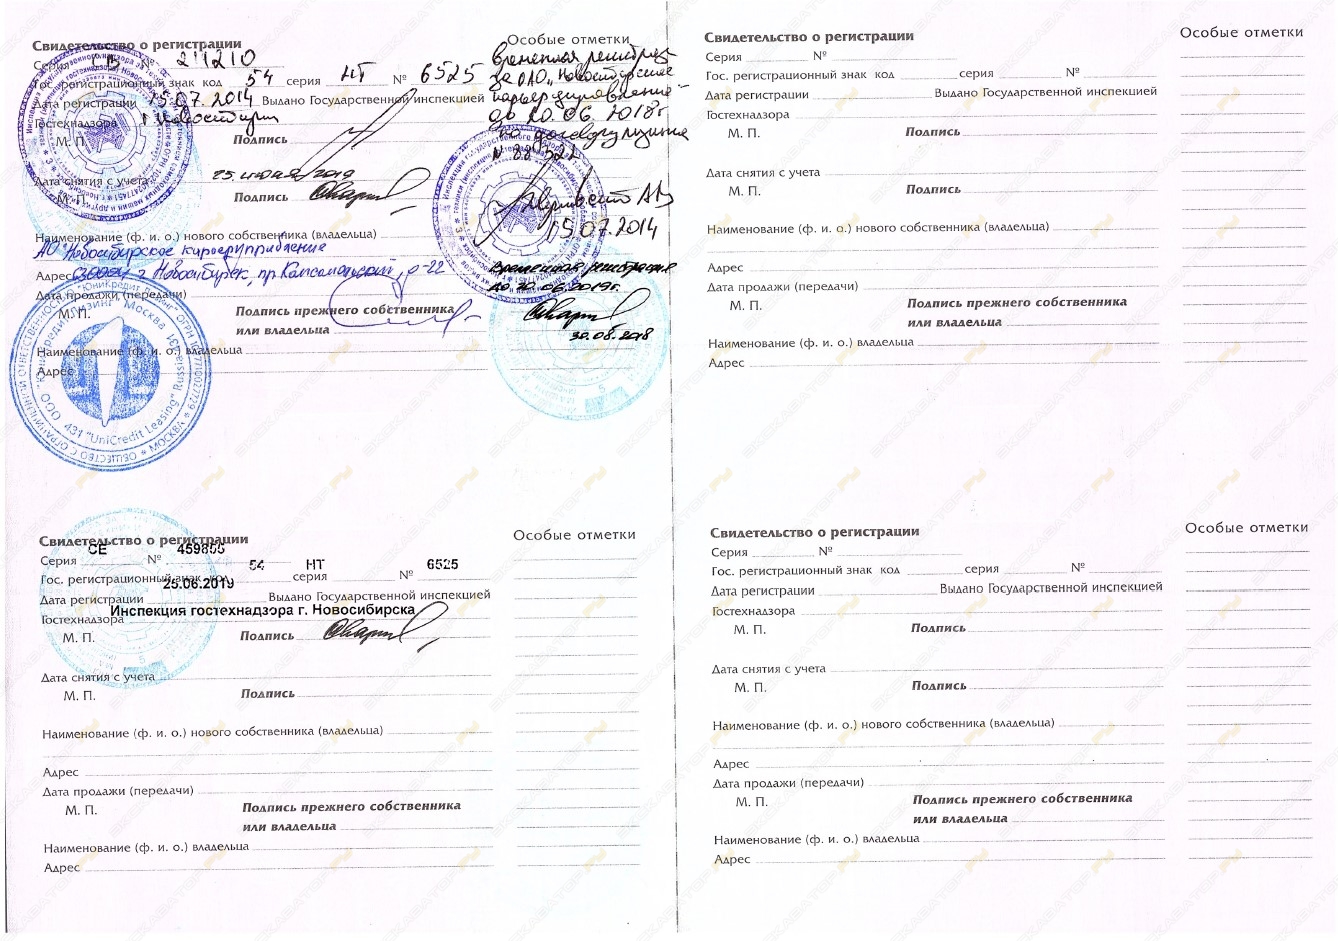 Свидетельство о регистрации
Серия СВ № 211210
Гос. регистрационный знак код 54 серия НТ № 6525
Дата регистрации 15.07.2014 Выдано Государственной инспекцией
Гостехнадзора г. Новосибирск
М. П. Подпись
Дата снятия с учета 25 июня 2019
М. П. Подпись
Наименование (ф. и. о.) нового собственника (владельца)
АО "Новосибирское карьероуправление"
Адрес г. Новосибирск, пр. Комсомольский, д-22
Дата продажи (передачи)
М. П. Подпись прежнего собственника
или владельца
Наименование (ф. и. о.) владельца
Адрес
ООО "ЮниКредит Лизинг" Москва
431 "UniCredit Leasing" Russia
Особые отметки
Временная регистрац
за ОАО "Новосибирское
карьероуправление"
до 20.06.2018г
договору лизинга
15.07.2014
Временная регистрация
до 30.06.2019г.
30.08.2018
Свидетельство о регистрации
Серия СЕ № 459855
Гос. регистрационный знак код 54 серия НТ № 6525
Дата регистрации 25.06.2019 Выдано Государственной инспекцией
Гостехнадзора Инспекция гостехнадзора г. Новосибирска
М. П. Подпись
Дата снятия с учета
М. П. Подпись
Наименование (ф. и. о.) нового собственника (владельца)
Адрес
Дата продажи (передачи)
М. П. Подпись прежнего собственника
или владельца
Наименование (ф. и. о.) владельца
Адрес
Особые отметки
Свидетельство о регистрации
Серия №
Гос. регистрационный знак код серия №
Дата регистрации Выдано Государственной инспекцией
Гостехнадзора
М. П. Подпись
Дата снятия с учета
М. П. Подпись
Наименование (ф. и. о.) нового собственника (владельца)
Адрес
Дата продажи (передачи)
М. П. Подпись прежнего собственника
или владельца
Наименование (ф. и. о.) владельца
Адрес
Особые отметки
Свидетельство о регистрации
Серия №
Гос. регистрационный знак код серия №
Дата регистрации Выдано Государственной инспекцией
Гостехнадзора
М. П. Подпись
Дата снятия с учета
М. П. Подпись
Наименование (ф. и. о.) нового собственника (владельца)
Адрес
Дата продажи (передачи)
М. П. Подпись прежнего собственника
или владельца
Наименование (ф. и. о.) владельца
Адрес
Особые отметки